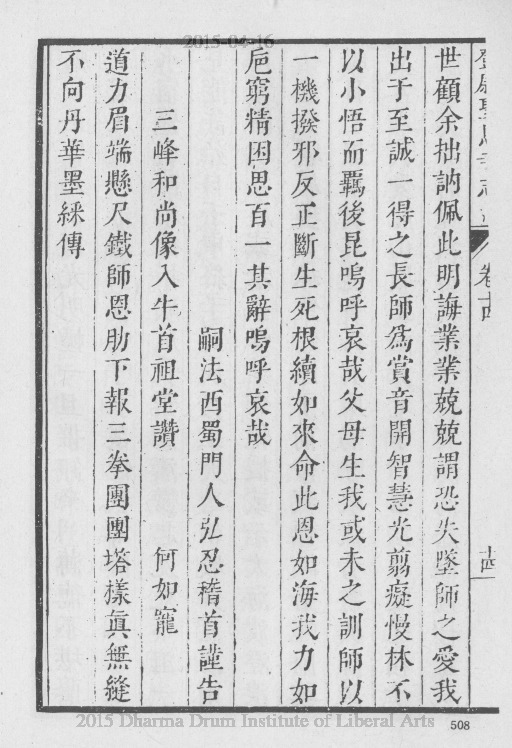 2015-04-16
鄧尉聖恩寺志
卷十四
十四
世顧余拙訥佩此明誨業業兢兢謂恐失墜師之愛我
出于至誠一得之長師爲賞音開智慧光翦癡慢林不
以小悟而覊後昆嗚呼哀哉父母生我或未之訓師以
一機撥邪反正斷生死根續如來命此恩如海我力如
巵窮精困思百一其辭嗚呼哀哉
嗣法西蜀門人弘忍稽首謹告
三峰和尚像入牛首祖堂讚 何如寵
道力眉端懸尺鐵師恩肋下報三拳團團塔樣眞無縫
不向丹華墨綵傳
2015 Dharma Drum Institute of Liberal Arts
508